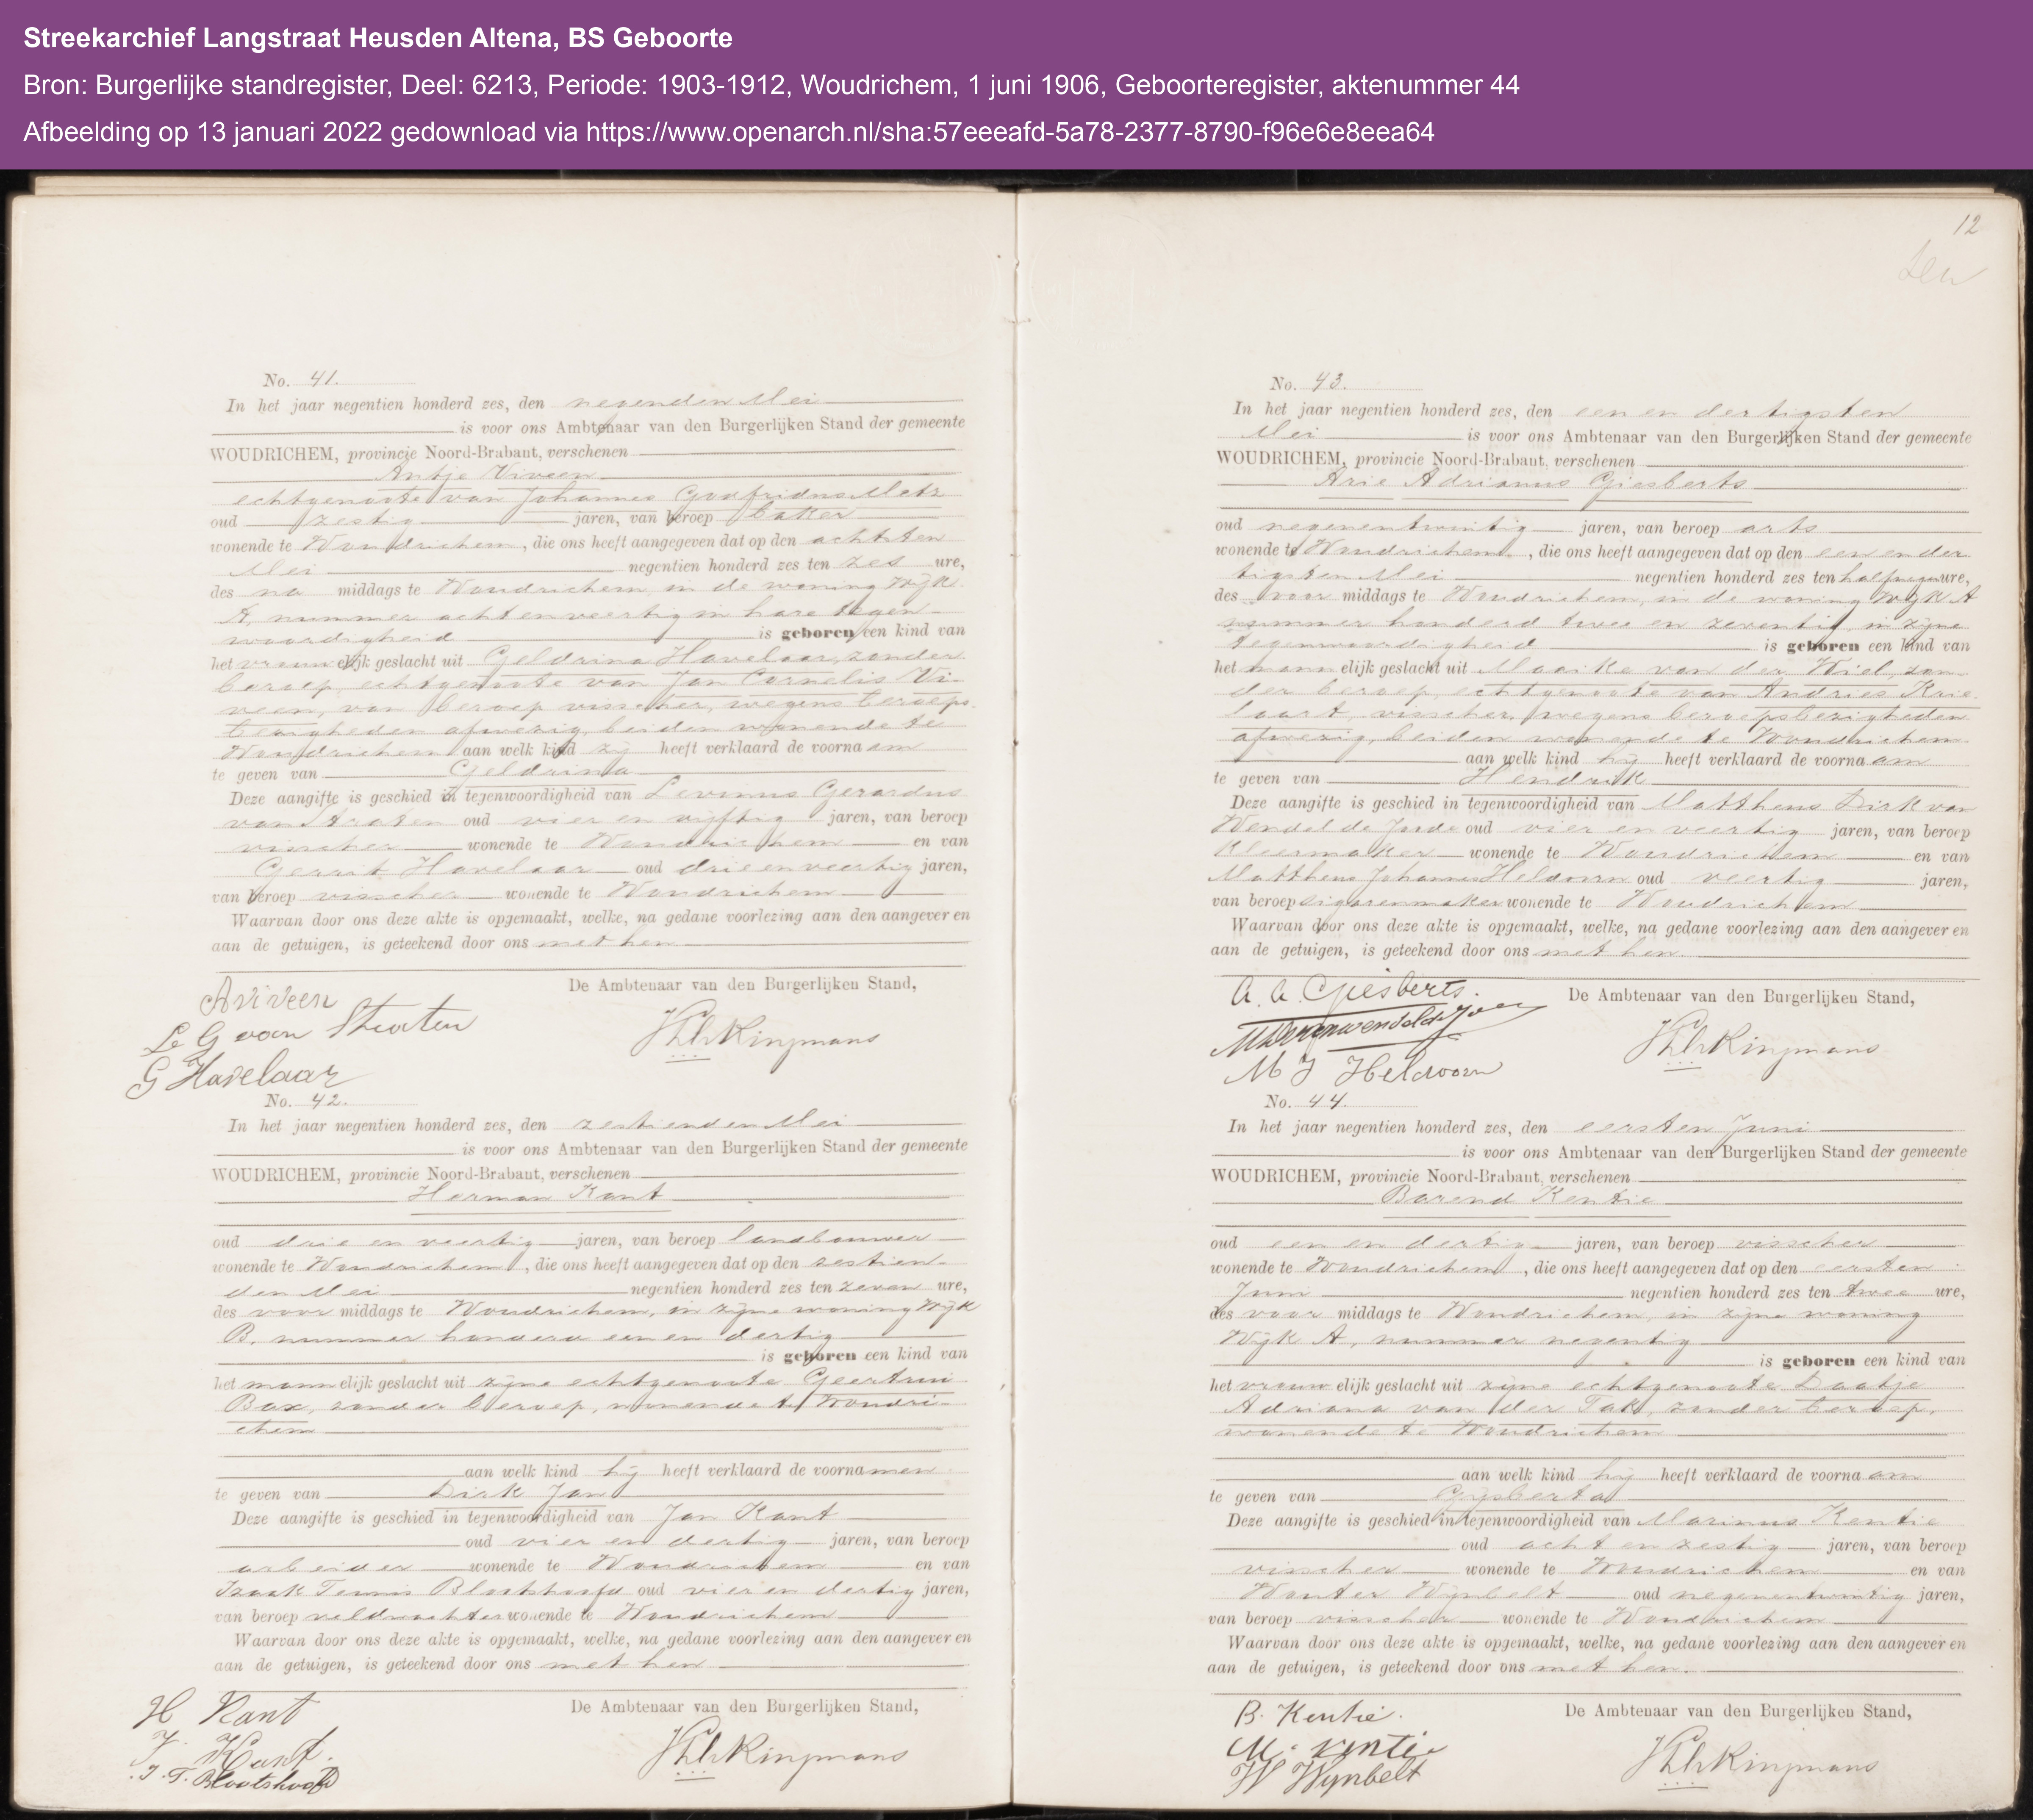 Streekarchief Langstraat Heusden Altena, BS Geboorte
Bron: Burgerlijke standregister, Deel: 6213, Periode: 1903-1912, Woudrichem, 1 juni 1906, Geboorteregister, aktenummer 44
Afbeelding op 13 januari 2022 gedownload via https://www.openarch.nl/sha:57eeeafd-5a78-2377-8790-f96e6e8eea64
No. 41.
In het jaar negentien honderd zes, den negenden Mei
is voor ons Ambtenaar van den Burgerlijken Stand der gemeente
WOUDRICHEM, provincie Noord-Brabant, verschenen
Antje Viveen
echtgenoote van Johannes Godfridus Metz
oud zestig jaren, van beroep baker
wonende te Woudrichem, die ons heeft aangegeven dat op den achtsten
Mei negentien honderd zes ten zes ure,
des na middags te Woudrichem, in de woning Wijk
A, nummer achtenveertig in hare tegen-
woordigheid is geboren een kind van
het vrouwelijk geslacht uit Geldrina Havelaar, zonder
beroep, echtgenoote van Jan Cornelis Vi-
veen, van beroep visscher, wegens beroeps-
bezigheden afwezig, beiden wonende te
Woudrichem aan welk kind zij heeft verklaard de voornaam
te geven van Geldrina
Deze aangifte is geschied in tegenwoordigheid van Levinus Gerardus
van Straten oud vier en vijftig jaren, van beroep
visscher wonende te Woudrichem en van
Gerrit Havelaar oud drie en veertig jaren,
van beroep visscher wonende te Woudrichem
Waarvan door ons deze akte is opgemaakt, welke, na gedane voorlezing aan den aangever en
aan de getuigen, is geteekend door ons met hen
De Ambtenaar van den Burgerlijken Stand,
A Viveen
L G van Straten
G Havelaar
No. 42.
In het jaar negentien honderd zes, den zestienden Mei
is voor ons Ambtenaar van den Burgerlijken Stand der gemeente
WOUDRICHEM, provincie Noord-Brabant, verschenen
Herman Kant
oud drie en veertig jaren, van beroep landbouwer
wonende te Woudrichem, die ons heeft aangegeven dat op den zestien-
den Mei negentien honderd zes ten zeven ure,
des voor middags te Woudrichem, in zijne woning Wijk
B, nummer honderd een en dertig
is geboren een kind van
het mannelijk geslacht uit zijne echtgenoote Geertrui
Bax, zonder beroep, wonende te Woudri-
chem
aan welk kind hij heeft verklaard de voornamen
te geven van Dirk Jan
Deze aangifte is geschied in tegenwoordigheid van Jan Kant
oud vier en dertig jaren, van beroep
arbeider wonende te Woudrichem en van
Izaak Teunis Blootshoofd oud vier en dertig jaren,
van beroep veldwachter wonende te Woudrichem
Waarvan door ons deze akte is opgemaakt, welke, na gedane voorlezing aan den aangever en
aan de getuigen, is geteekend door ons met hen
De Ambtenaar van den Burgerlijken Stand,
H Kant
J. Kant.
I. T. Blootshoofd
12
No. 43.
In het jaar negentien honderd zes, den een en dertigsten
Mei is voor ons Ambtenaar van den Burgerlijken Stand der gemeente
WOUDRICHEM, provincie Noord-Brabant, verschenen
Arie Adrianus Giesberts
oud negenentwintig jaren, van beroep arts
wonende te Woudrichem, die ons heeft aangegeven dat op den een en der
tigsten Mei negentien honderd zes ten half negen ure,
des voor middags te Woudrichem, in de woning Wijk A
nummer honderd twee en zeventig, in zijne
tegenwoordigheid is geboren een kind van
het mannelijk geslacht uit Maaike van der Wiel, zon-
der beroep, echtgenoote van Andries Krie-
laart, visscher, wegens beroepsbezigheden
afwezig, beiden wonende te Woudrichem
aan welk kind hij heeft verklaard de voornaam
te geven van Hendrik
Deze aangifte is geschied in tegenwoordigheid van Mattheus Dirk van
Wendel de Joode oud vier en veertig jaren, van beroep
kleermaker wonende te Woudrichem en van
Mattheus Johannes Heldoorn oud veertig jaren,
van beroep sigarenmaker wonende te Woudrichem
Waarvan door ons deze akte is opgemaakt, welke, na gedane voorlezing aan den aangever en
aan de getuigen, is geteekend door ons met hen
De Ambtenaar van den Burgerlijken Stand,
A. A. Giesberts.
M J Heldoorn
No. 44.
In het jaar negentien honderd zes, den eersten Juni
is voor ons Ambtenaar van den Burgerlijken Stand der gemeente
WOUDRICHEM, provincie Noord-Brabant, verschenen
Barend Kentie
oud een en dertig jaren, van beroep visscher
wonende te Woudrichem, die ons heeft aangegeven dat op den eersten
Juni negentien honderd zes ten twee ure,
des voor middags te Woudrichem, in zijne woning
Wijk A, nummer negentig
is geboren een kind van
het vrouwelijk geslacht uit zijne echtgenoote Daatje
Adriana van der Tak, zonder beroep,
wonende te Woudrichem
aan welk kind hij heeft verklaard de voornaam
te geven van Gijsberta
Deze aangifte is geschied in tegenwoordigheid van Marinus Kentie
oud acht en zestig jaren, van beroep
visscher wonende te Woudrichem en van
Wouter Wijnbelt oud negenentwintig jaren,
van beroep visscher wonende te Woudrichem
Waarvan door ons deze akte is opgemaakt, welke, na gedane voorlezing aan den aangever en
aan de getuigen, is geteekend door ons met hen.
De Ambtenaar van den Burgerlijken Stand,
B. Kentie.
M. Kentie
W Wijnbelt